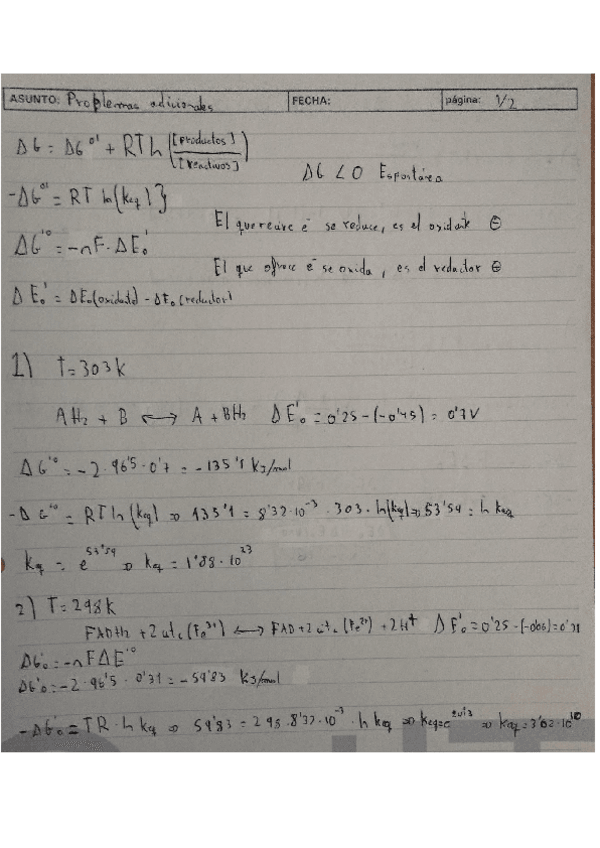 ASUNTO: Problemas adicionales FECHA: página: 1/2
ΔG = ΔG°' + RT ln ([Productos]/[Reactivos])
ΔG < 0 Espontánea
-ΔG°' = RT ln(Keq)}
El que recibe é se reduce, es el oxidante ⊖
ΔG'° = -nF·ΔE₀'
El que ofrece é se oxida, es el reductor ⊖
ΔE₀' = ΔE₀(oxidante) - ΔE₀(reductor)
1) T=303K
AH₂ + B ⟷ A + BH₂ ΔE'₀ = 0'25-(-0'45) = 0'7V
ΔG'° = -2·96'5·0'7 = -135'1 KJ/mol
-ΔG'° = RT ln(Keq) ⇒ 135'1 = 8'32·10⁻³·303·ln(Keq) ⇒ 53'59 = ln Keq
Keq = e^53'59 ⇒ Keq = 1'88·10²³
2) T=298K
FADH₂ + 2 cit c (Fe³⁺) ⟷ FAD + 2 cit c (Fe²⁺) + 2H⁺ ΔE'₀ = 0'25-(-0'06) = 0'31
ΔG'₀ = -nFΔE'°
ΔG'₀ = -2·96'5·0'31 = -59'83 KJ/mol
-ΔG'₀ = TR·ln Keq ⇒ 59'83 = 298·8'32·10⁻³·ln Keq ⇒ Keq = ⇒ Keq = 3'02·10¹⁰